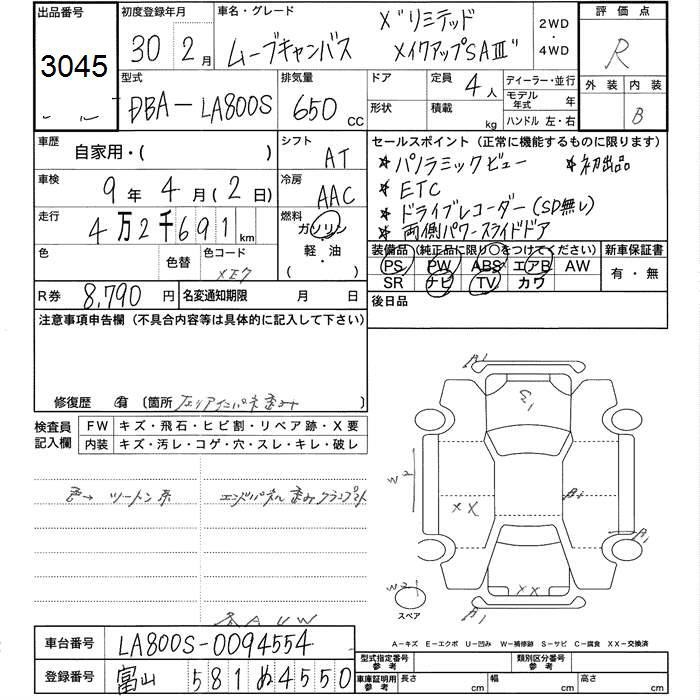 出品番号 初度登録年月 車名・グレード 評価点
3045 30 2月 ムーブキャンバス X"リミテッド メイクアップSAⅢ" 2WD・4WD R
型式 排気量 ドア 定員 4人 ディーラー・並行 外装 内装
DBA-LA800S 650cc 形状 積載 kg モデル年式 年 ハンドル 左・右 B
車歴 自家用・( ) シフト AT
セールスポイント (正常に機能するものに限ります)
★パノラミックビュー ★初出品
車検 9年4月(2日) 冷房 AAC
★ETC
★ドライブレコーダー(SD無し)
走行 4万2千691km 燃料 ガソリン・軽・油・( )
★両側パワースライドドア
色 色替 色コード
装備品 (純正品に限り○をつけてください) 新車保証書
PS PW ABS エアB AW 有・無
SR ナビ TV カワ
R券 8,790円 名変通知期限 月 日
後日品
注意事項申告欄 (不具合内容等は具体的に記入して下さい)
修復歴 有 (箇所
検査員記入欄 FW キズ・飛石・ヒビ割・リペア跡・X要
内装 キズ・汚レ・コゲ・穴・スレ・キレ・破レ
色→ツートン系
W2
XX
XX
スペア
A-キズ E-エクボ U-凹み W-補修跡 S-サビ C-腐食 XX-交換済
車台番号 LA800S-0094554
型式指定番号 参考 類別区分番号 参考
登録番号 富山 581 ぬ4550
車庫証明用参考 長さ cm 幅 cm 高さ cm